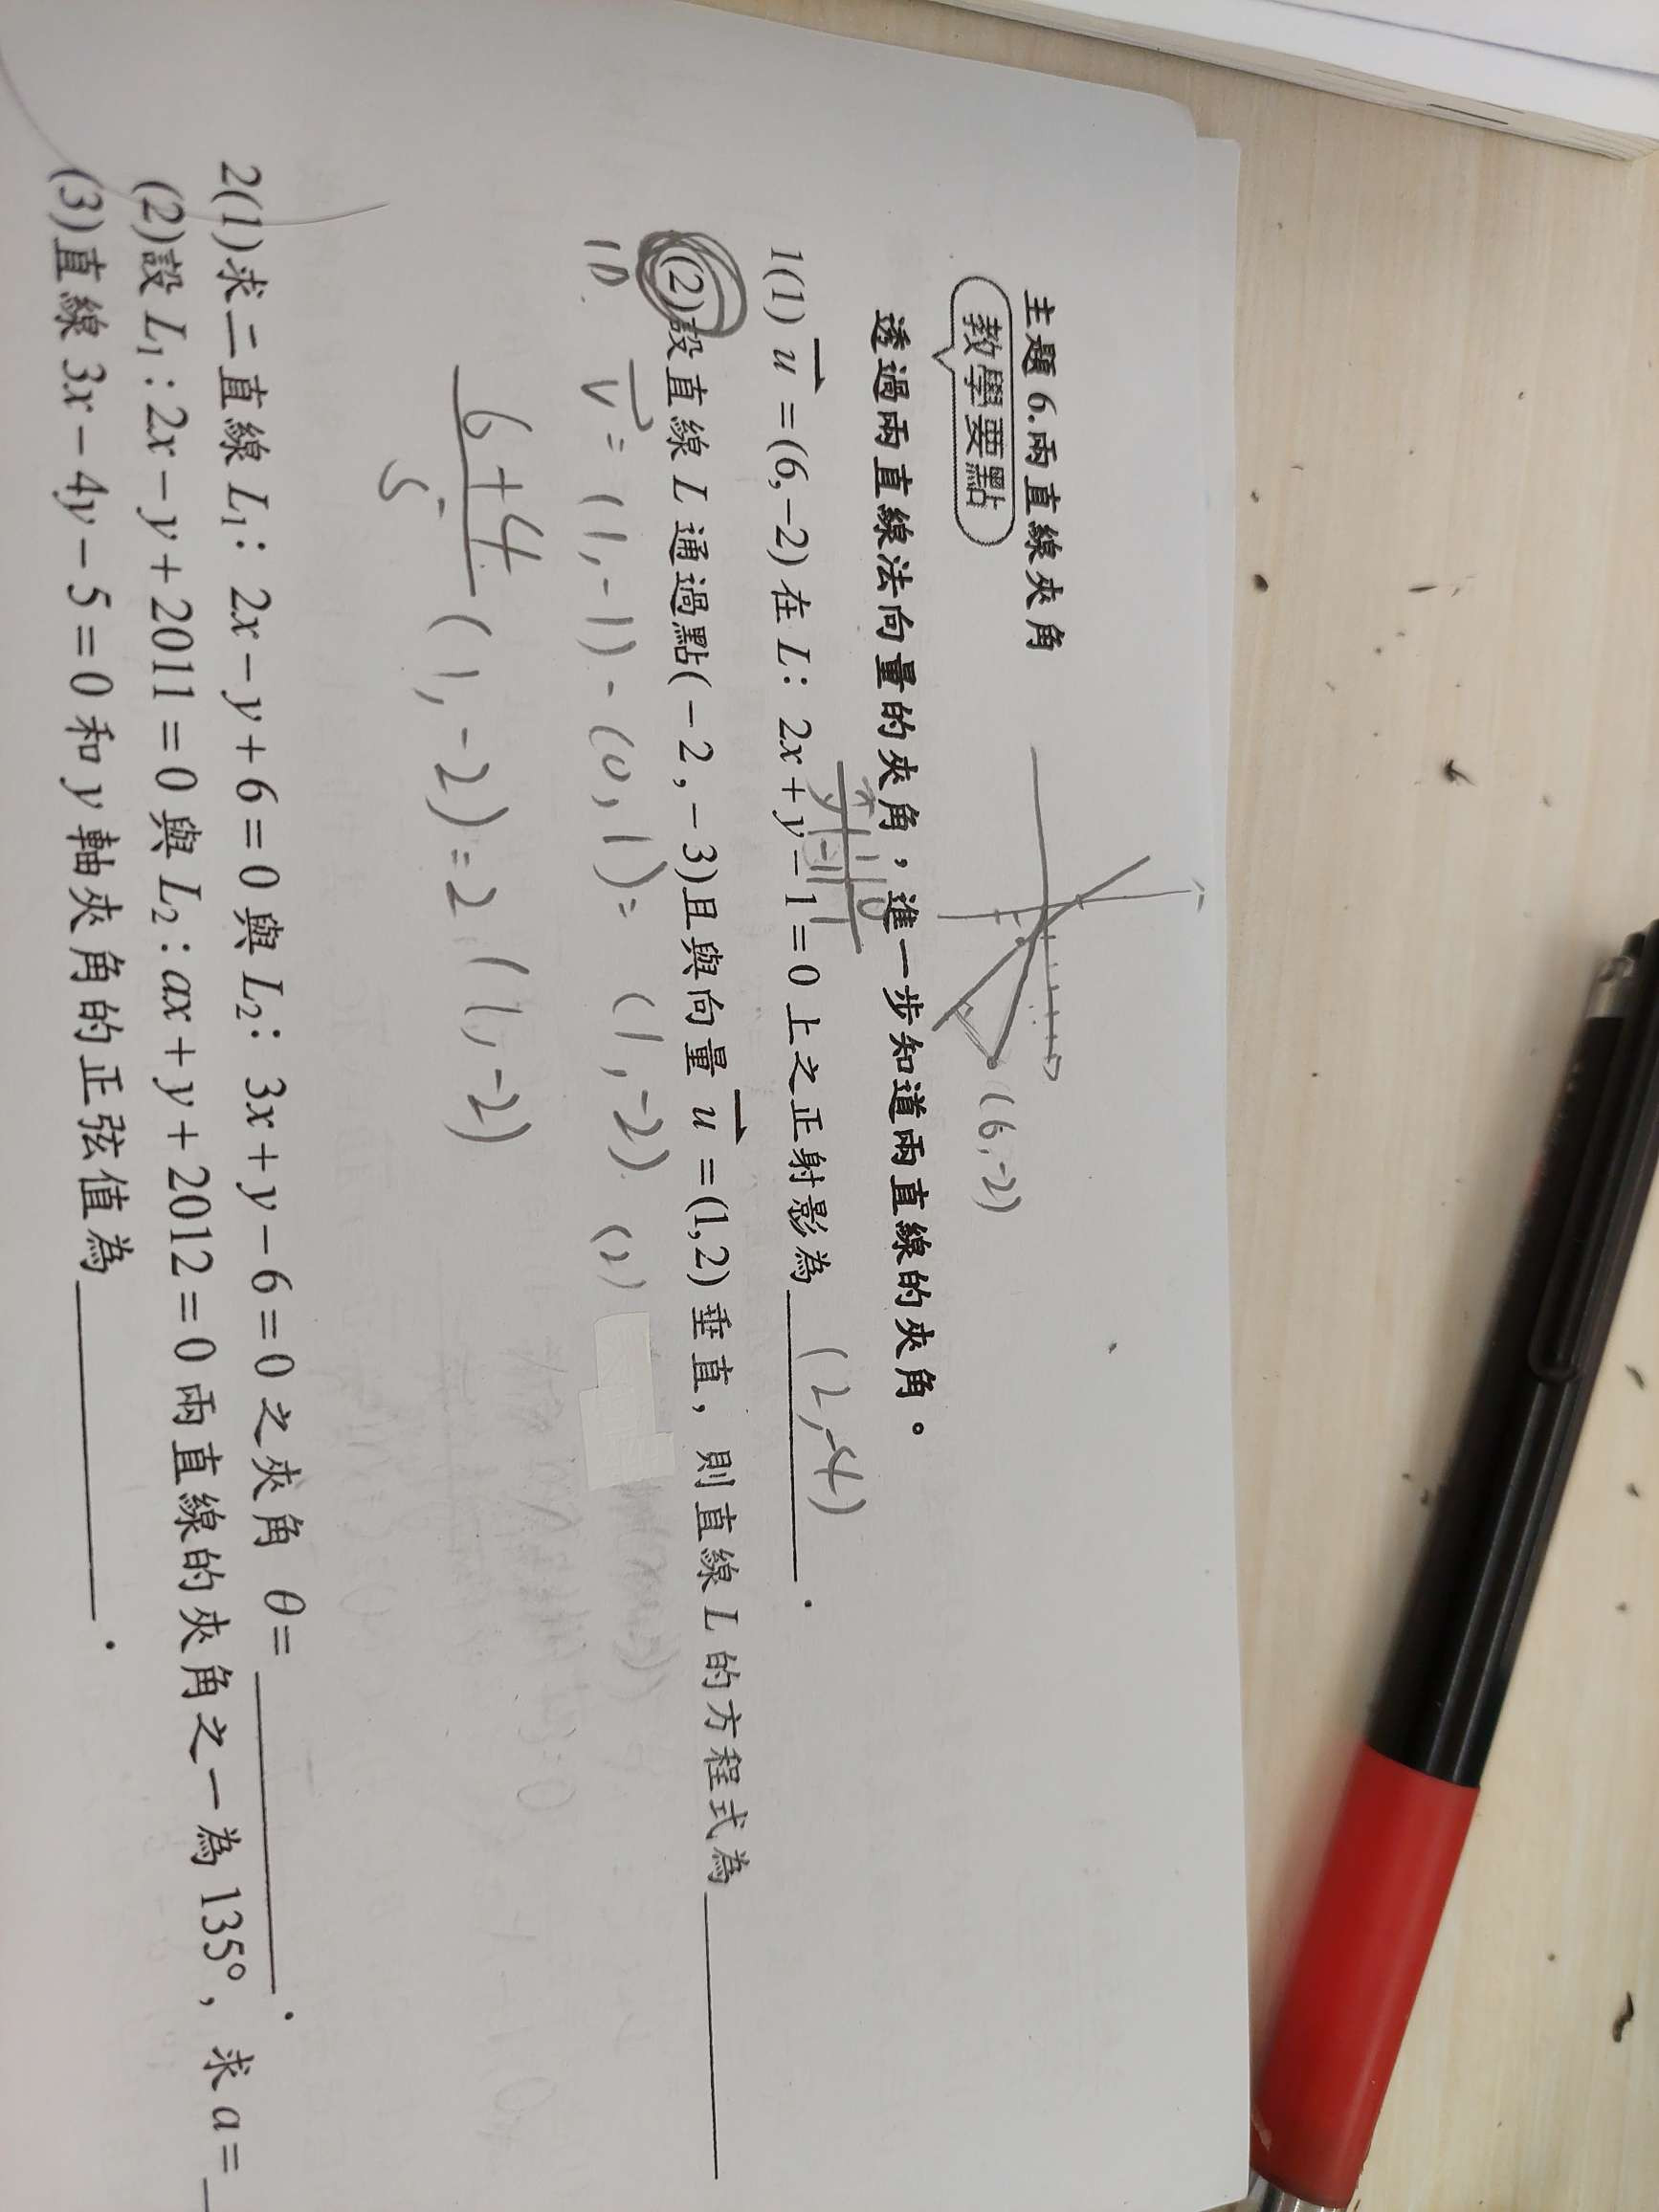 主題 6.兩直線夾角
教學要點
(6,-2)
透過兩直線法向量的夾角，進一步知道兩直線的夾角。
x 1 0
y -1 1
1(1) u = (6,-2) 在 L: 2x + y - 1 = 0 上之正射影為 (2,-4) .
(2)設直線 L 通過點(-2,-3)且與向量 u = (1,2) 垂直，則直線 L 的方程式為
V = (1,-1) - (0,1) = (1,-2).
6+4/5 (1,-2) = 2 (1,-2)
2(1)求二直線 L1: 2x - y + 6 = 0 與 L2: 3x + y - 6 = 0 之夾角 θ = .
(2)設 L1: 2x - y + 2011 = 0 與 L2: ax + y + 2012 = 0 兩直線的夾角之一為 135°，求 a =
(3)直線 3x - 4y - 5 = 0 和 y 軸夾角的正弦值為 .